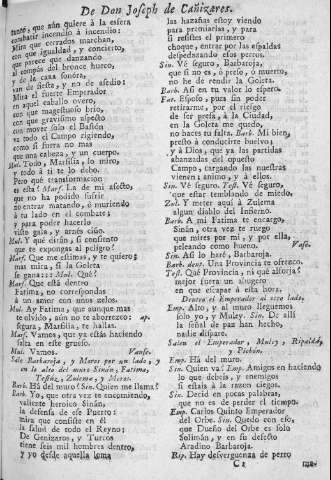 De Don Joseph de Cañizares.
tanto, que aún quiere à la esfera
combatir incendio à incendio:
Mira que cerrados marchan,
con que igualdad, y concierto,
que parece que danzando
al compás del bronce hueco,
y de la caxa sonòra,
van de fiesta, y no de asedio:
Mira el fuerte Emperador
en aquel caballo overo,
con que magestuoso brio,
con que gravisimo aspecto
con mover solo el Baston
va todo el Campo rigiendo,
como si fuera no mas
que una cabeza, y un cuerpo.
Mul. Todo, Marsilia, lo miro,
y todo à ti te lo debo.
Pero què transformacion
es esta! Mars. La de mi afecto,
que no ha podido sufrir
si entràr matando, ò muriendo
à tu lado en el combate;
y para poder hacerlo
visto gala, y arnès ciño.
Mul. Y què dirán, si consiento
que te expongas al peligro?
Mars. Que me estimas, y te quiero;
mas mira, si la Goleta
se gana::: Mul. Què?
Mars. Que està dentro
Fatima, no correspondas
à un amor con unos zelos.
Mul. Ay Fatima, que aunque mas
te olvido, aún no te aborrezco: ap.
segura, Marsilia, te hallas.
Mars. Vamos, que ya estás haciendo
falta en este grueso.
Mul. Vamos. Vanse.
Sale Barbaroja, y Moros por un lado, y
en lo alto del muro Sinán, Fatima,
Tesifa, Zulema y Moros.
Barb. Há del muro! Sin. Quien me llama?
Barb. Yo, que otra vez te encomiendo,
valiente heroico Sinàn,
la defensa de ese Puerto:
mira que consiste en èl
la salud de todo el Reyno;
De Genizaros, y Turcos
tiene seis mil hombres dentro,
y yo desde aquella loma
las hazañas estoy viendo
para premiarlas, y para
si resistes el primero
choque, entrar por las espaldas
despedazando esos perros.
Sin. Vè seguro, Barbaroja,
que si no es, ò preso, ò muerto,
no he de rendir la Goleta.
Barb. Asi en tu valor lo espero.
Fat. Esposo, pues sin poder
retirarme, por el riesgo
de ser presa, à la Ciudad,
en la Goleta me quedo,
no hagas tu falta. Barb. Mi bien,
presto à conducirte buelvo;
y à Dios, que ya las partidas
abanzadas del opuesto
Campo, cargando las nuestras
vienen: animo, y à ellos.
Sin. Vè seguro. Tesif. Vè seguro,
que estàr temblando de miedo.
Zul. Y meter aqui à Zulema
algun diablo del Infierno.
Barb. A mi Fatima te encargo,
Sinàn, otra vez te ruego
que mires por mi, y por ella,
peleando como bueno. Vase.
Sin. Asi lo haré, Barbaroja.
Barb. dent. Una Provincia te ofrezco.
Tesif. Què Provincia, ni què alforja?
mejor fuera un alugero
en que escapar à esta hora.
Dentro el Emperador al otro lado.
Emp. Alto, y al muro lleguemos
solo yo, y Muley. Sin. De alli
la señal de paz han hecho,
nadie dispare.
Salen el Emperador, Muley, Ripalda,
y Pichón.
Emp. Há del muro.
Sin. Quien va? Emp. Amigos en haciendo
lo que debeis, y enemigos
si estais à la razon ciegos.
Sin. Decid en pocas palabras,
que no es de perder el tiempo.
Emp. Carlos Quinto Emperador
del Orbe. Sin. Quedo con eso,
que Dueño del Orbe es solo
Solimàn, y en su defecto
Aradino Barbaroja.
Rip. Hay desverguenza de perro
C 2
mas